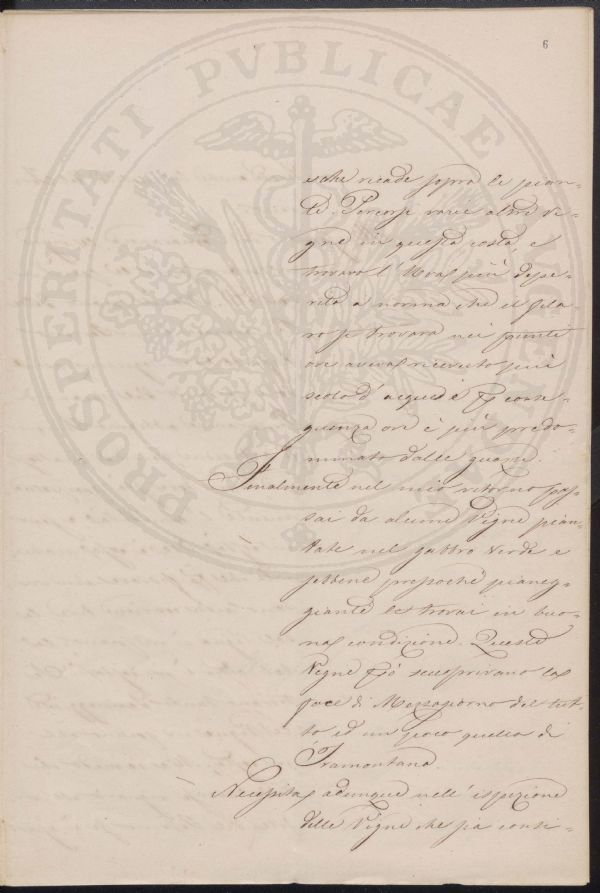 6
PROSPERITATI PVBLICAE
esche ricade sopra le pian-
te. Percorsi varie altre Vi-
gne in questa costa, e
trovavo l'Uva più depe-
rita a norma che il fila-
ro si trovava nei punti
ove aveva ricevuto più
scolo d'acqua e p conse-
guenza ove è più predo-
minato dalle guazze.
Finalmente nel mio ritorno pas-
sai da alcune Vigne pian-
tate nel gabbro verde e
sebbene pressochè pianeg-
gianti le trovai in buo-
na condizione. Queste
Vigne però scuoprivano la
face di Mezzogiorno del tut-
to ed un poco quella di
Tramontana.
Necessita adunque nell'ispezione
delle Vigne che sia consi-